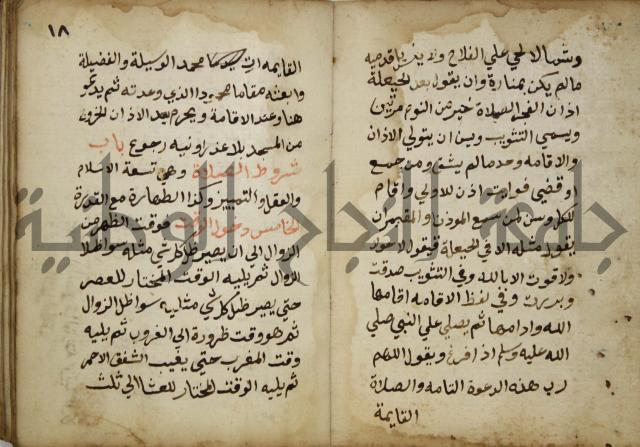 وشمالا لحي علي الفلاح ولا يزيل قدميه
مالم يكن بمنارة وان يقول بعد حيعلة
اذان الفجر الصلاة خير من النوم مرتين
ويسمى التثويب وسن ان يتولى الاذان
والاقامه واحد مالم يشق ومن جمع
او قضي فوايت اذن للاولي واقام
للكل وسن لمن سمع الموذن والمقيم ان
يقول مثله الا في الحيعلة فيقول لا حول
ولا قوة الا بالله وفي التثويب صدقت
وبررت وفي لفظ الاقامه اقامها
الله وادامها ثم يصلي علي النبي صلي
الله عليه وسلم اذا فرغ ويقول اللهم
رب هذه الدعوة التامه والصلاة
القايمة
١٨
القايمه ات محمد الوسيلة والفضيلة
وابعثه مقاما محمودا الذي وعدته ثم يدعو
هنا وعند الاقامة ويحرم بعد الاذان الخروج
من المسجد بلا عذر او نيه رجوع باب
شروط الصلاة وهي تسعة الاسلام
والعقل والتمييز وكذا الطهارة مع القدرة
الخامس دخول الوقت فوقت الظهر من
الزوال الى ان يصير ظل كل شي مثله سوا ظل
الزوال ثم يليه الوقت المختار للعصر
حتي يصير ظل كل شي مثليه سوا ظل الزوال
ثم هو وقت ظرورة الى الغروب ثم يليه
وقت المغرب حتي يغيب الشفق الاحمر
ثم يليه الوقت المختار للعشا الي ثلث
جامعة النجاح الوطنية